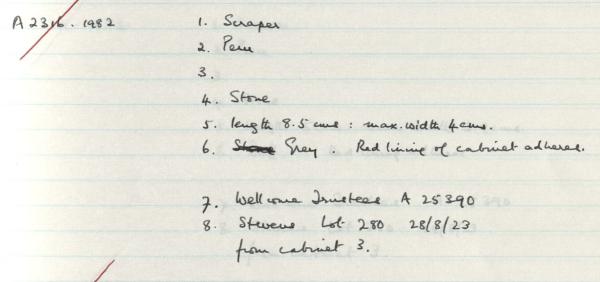 A2316.1982 1. Scraper
2. Peru
3.
4. Stone
5. length 8.5 cms : max. width 4 cms.
6. Stone Grey. Red lining of cabinet adheres.
7. Wellcome Trustees A 25390
8. Stevens Lot 280 28/8/23
from cabinet 3.